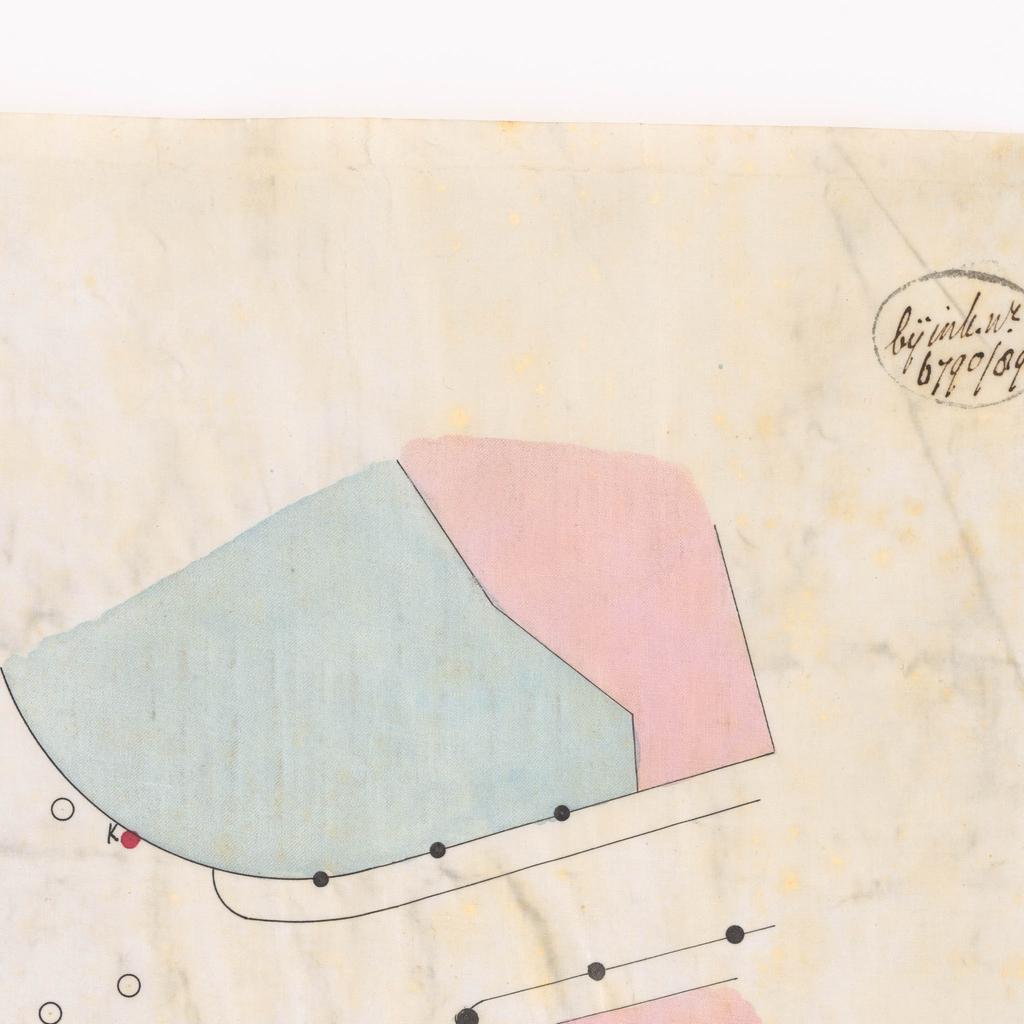 bÿ ink. nr.
6790/89
K